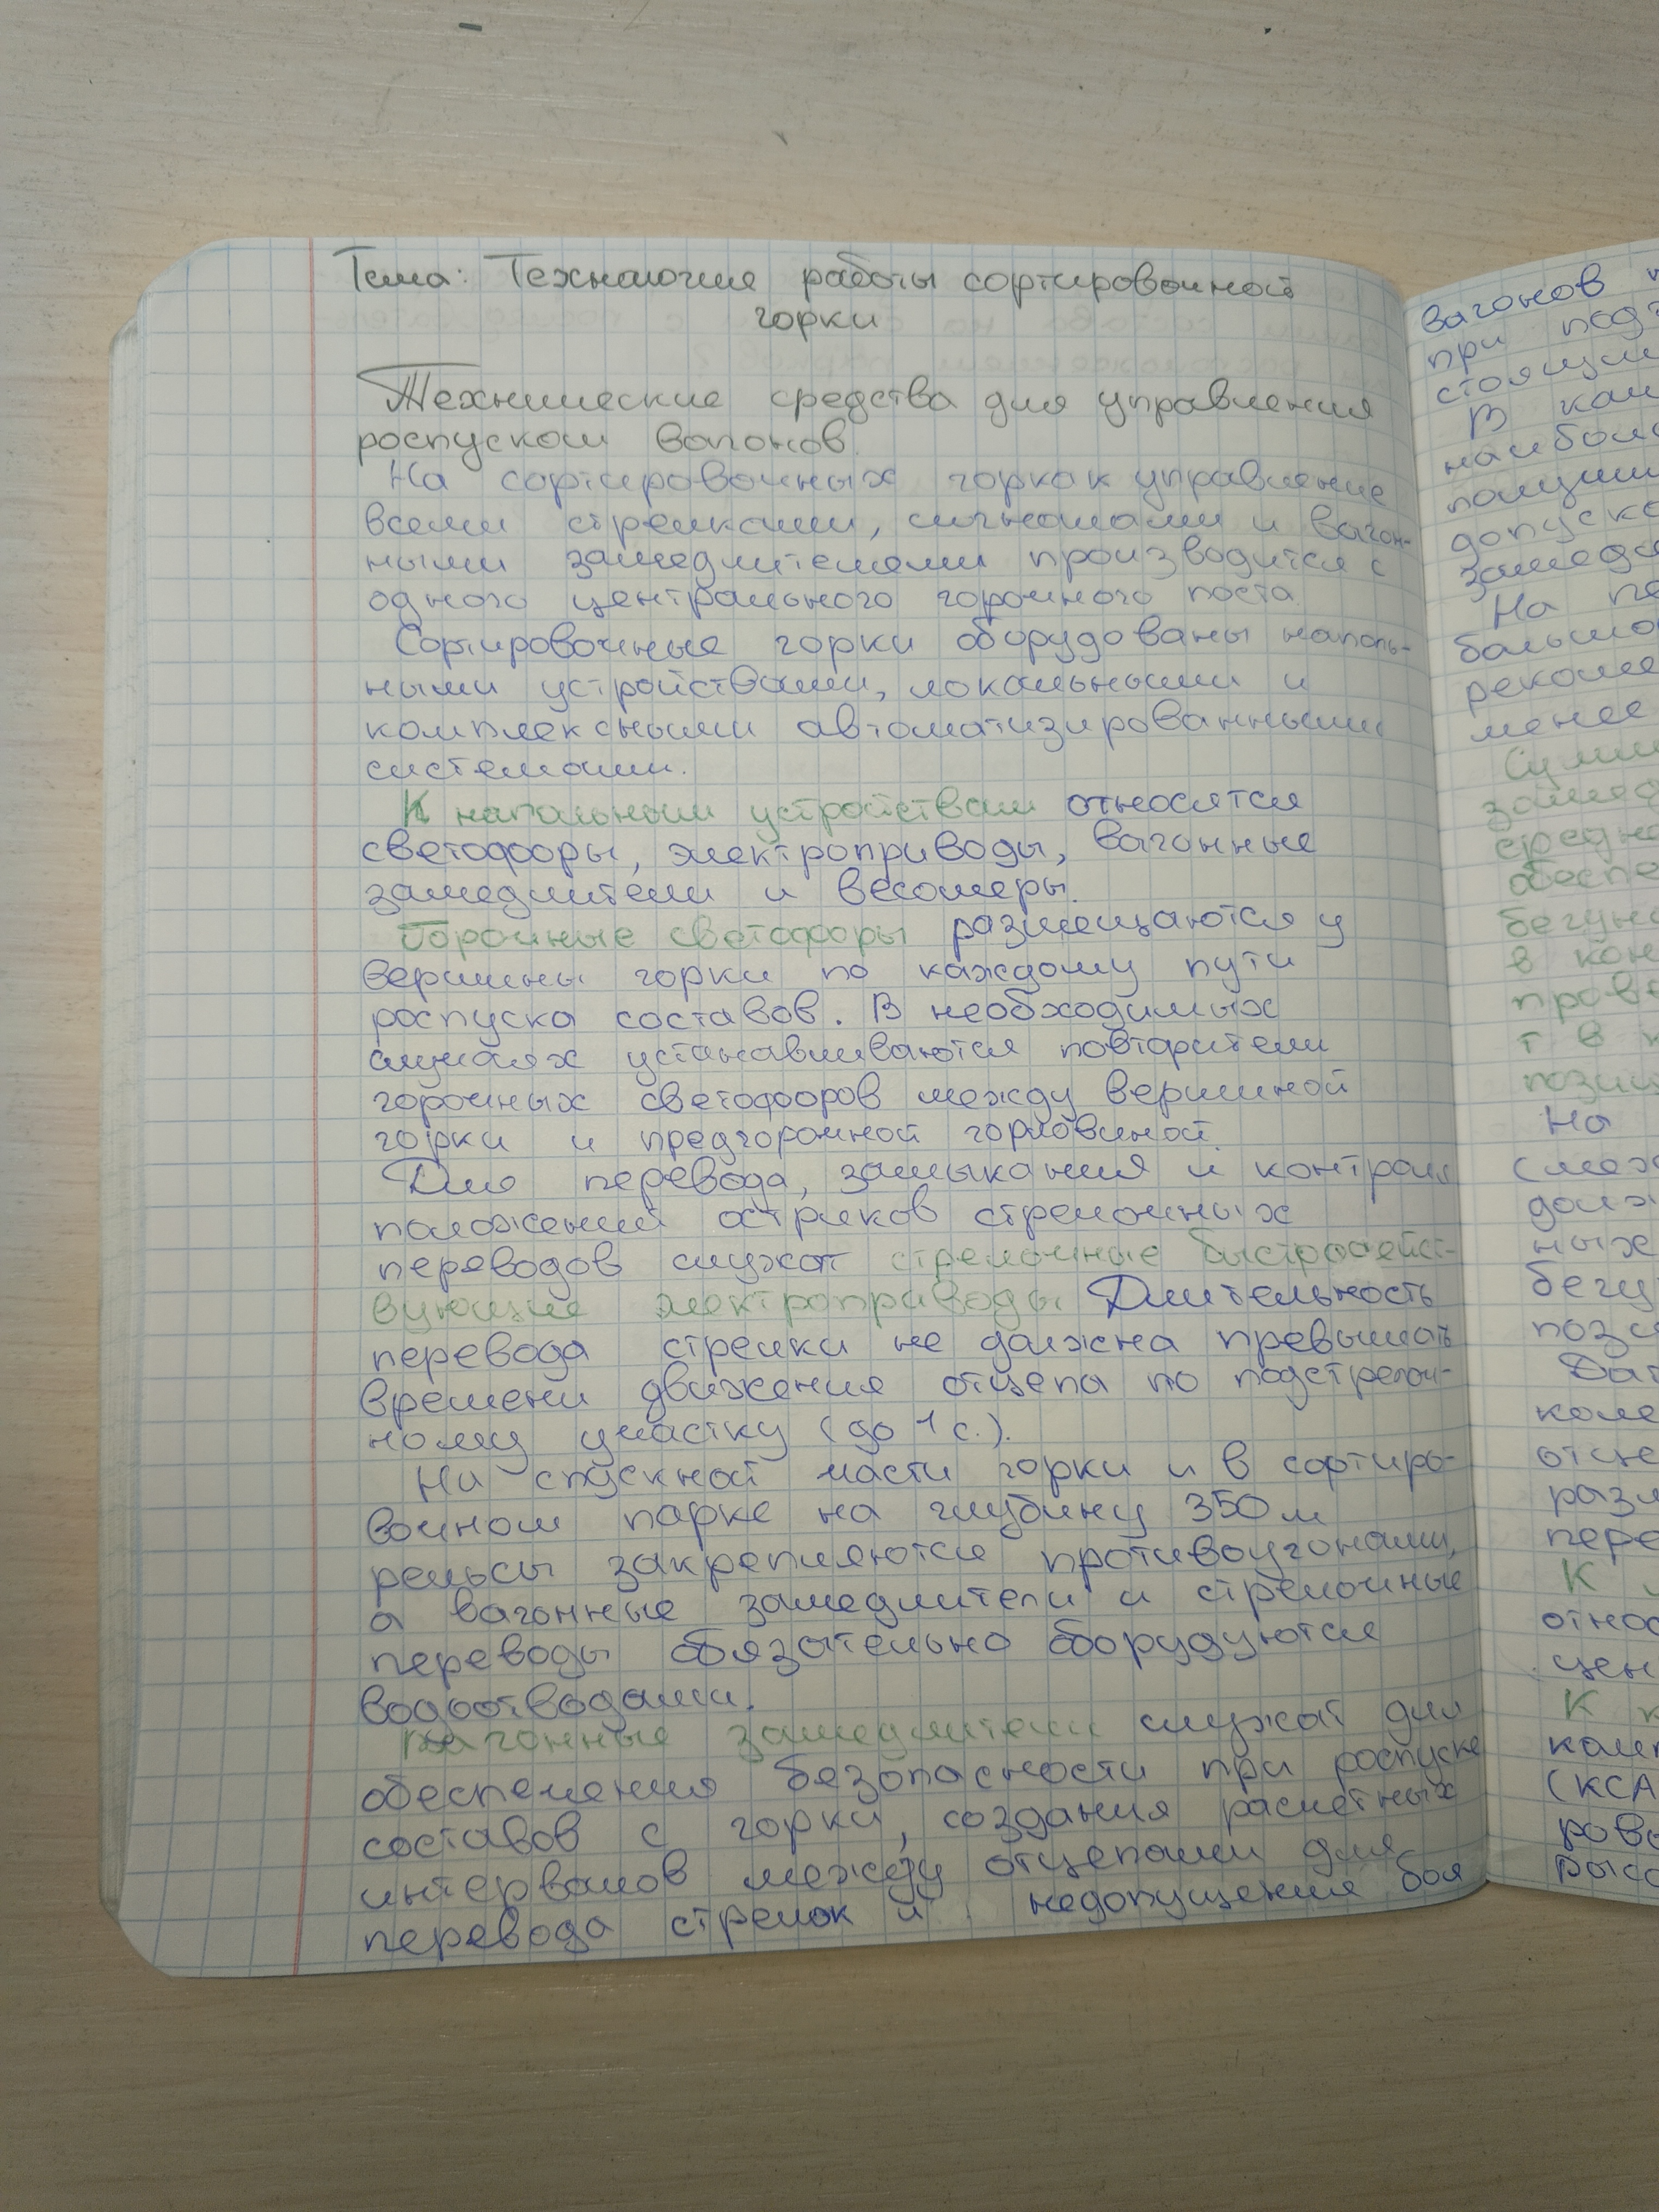 Тема: Технология работы сортировочной
горки
Технические средства для управления
роспуском вагонов.
На сортировочных горках управление
всеми стрелками, сигналами и вагон-
ными замедлителями производится с
одного центрального горочного поста.
Сортировочные горки оборудованы наполь-
ными устройствами, локальными и
комплексными автоматизированными
системами.
К напольным устройствам относятся
светофоры, электроприводы, вагонные
замедлители и весомеры.
Горочные светофоры размещаются у
вершины горки по каждому пути
роспуска составов. В необходимых
случаях устанавливаются повторители
горочных светофоров между вершиной
горки и предгорочной горловиной.
Для перевода, замыкания и контроля
положений остряков стрелочных
переводов служат стрелочные быстродейст-
вующие электроприводы. Длительность
перевода стрелки не должна превышать
времени движения отцепа по подстрелоч-
ному участку (до 1 с.).
На спускной части горки и в сортиро-
вочном парке на глубину 350 м
рельсы закрепляются противоугонами,
а вагонные замедлители и стрелочные
переводы обязательно оборудуются
водоотводами.
Вагонные замедлители служат для
обеспечения безопасности при роспуске
составов с горки, создания расчетных
интервалов между отцепами для
перевода стрелок и недопущения боя
вагонов
при
В
На
менее
На
К
К
(КСА